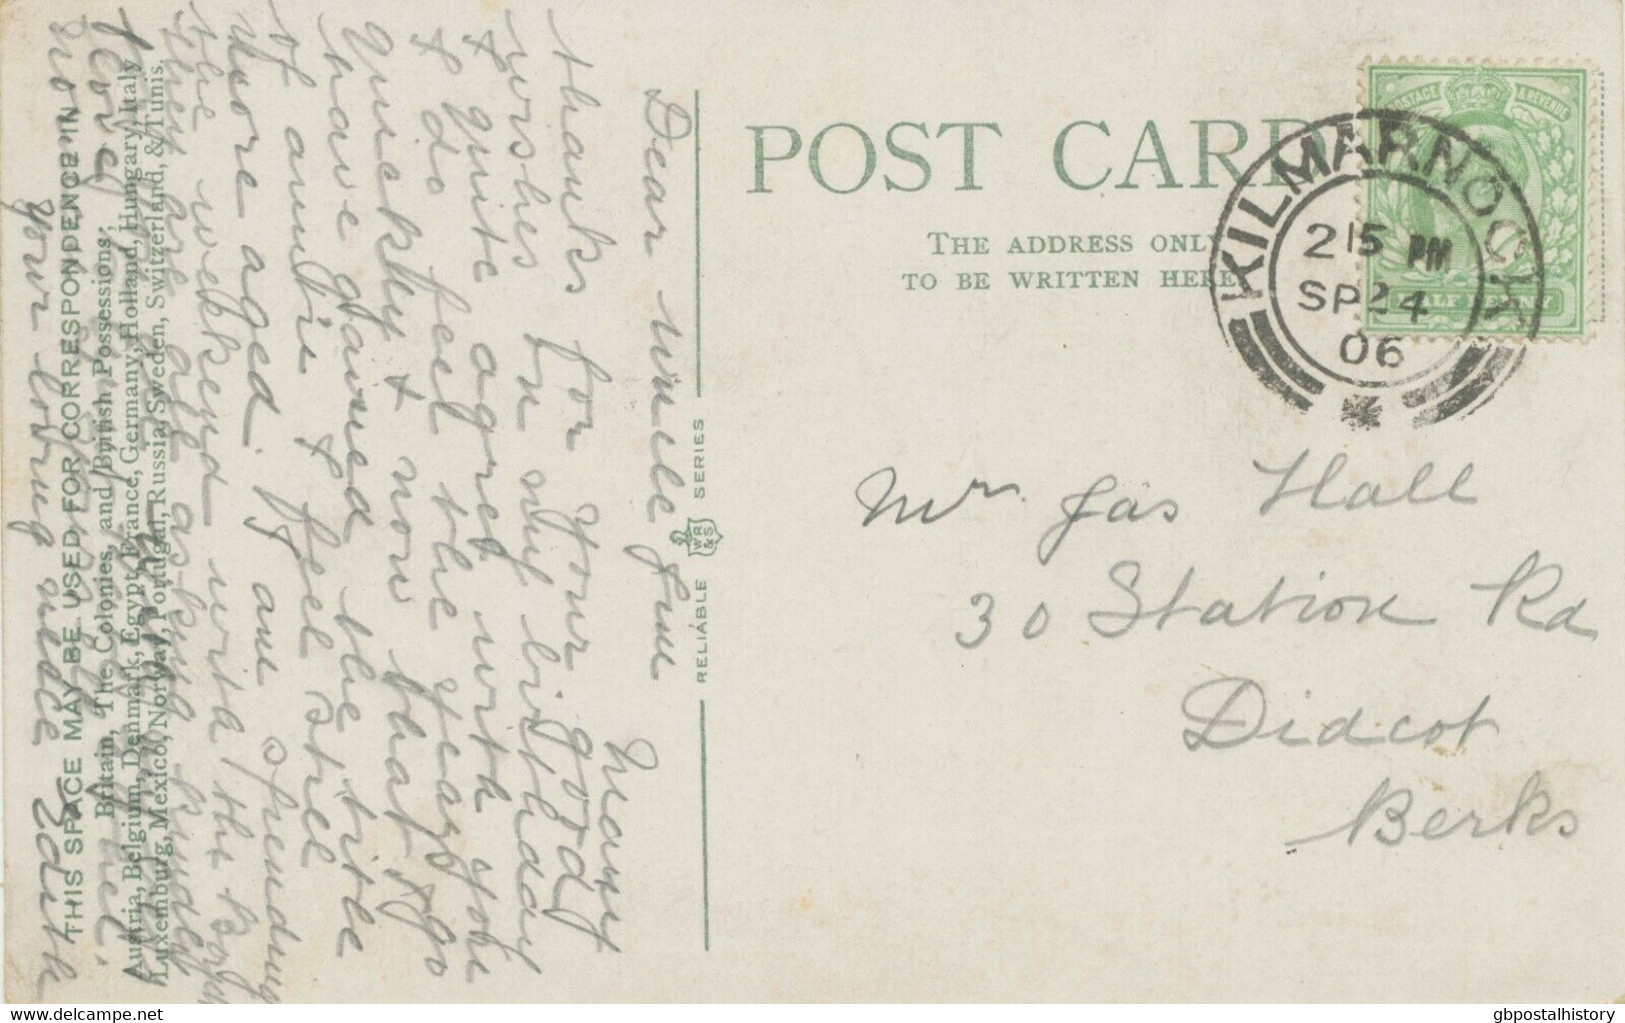 POST CARD
THE ADDRESS ONLY
TO BE WRITTEN HERE
POSTAGE & REVENUE
HALF PENNY
KILMARNOCK
215 PM
SP24
06
Mr. Jas Hall
30 Station Rd
Didcot
Berks
RELIABLE WR&S SERIES
Dear Uncle Jim
Many
thanks for your good
wishes on my birthday
I quite agree with you
I do feel the years go
quickly & now that I
have gained the title
of auntie I feel still
more aged. I am spending
the weekend with the Boyds
they are all asking kindly
for
your loving niece Edith
THIS SPACE MAY BE USED FOR CORRESPONDENCE IN
Britain, The Colonies, and British Possessions;
Austria, Belgium, Denmark, Egypt, France, Germany, Holland, Hungary, Italy
Luxemburg, Mexico, Norway, Portugal, Russia, Sweden, Switzerland, & Tunis.
hippostcard.com
gbpostalhistory